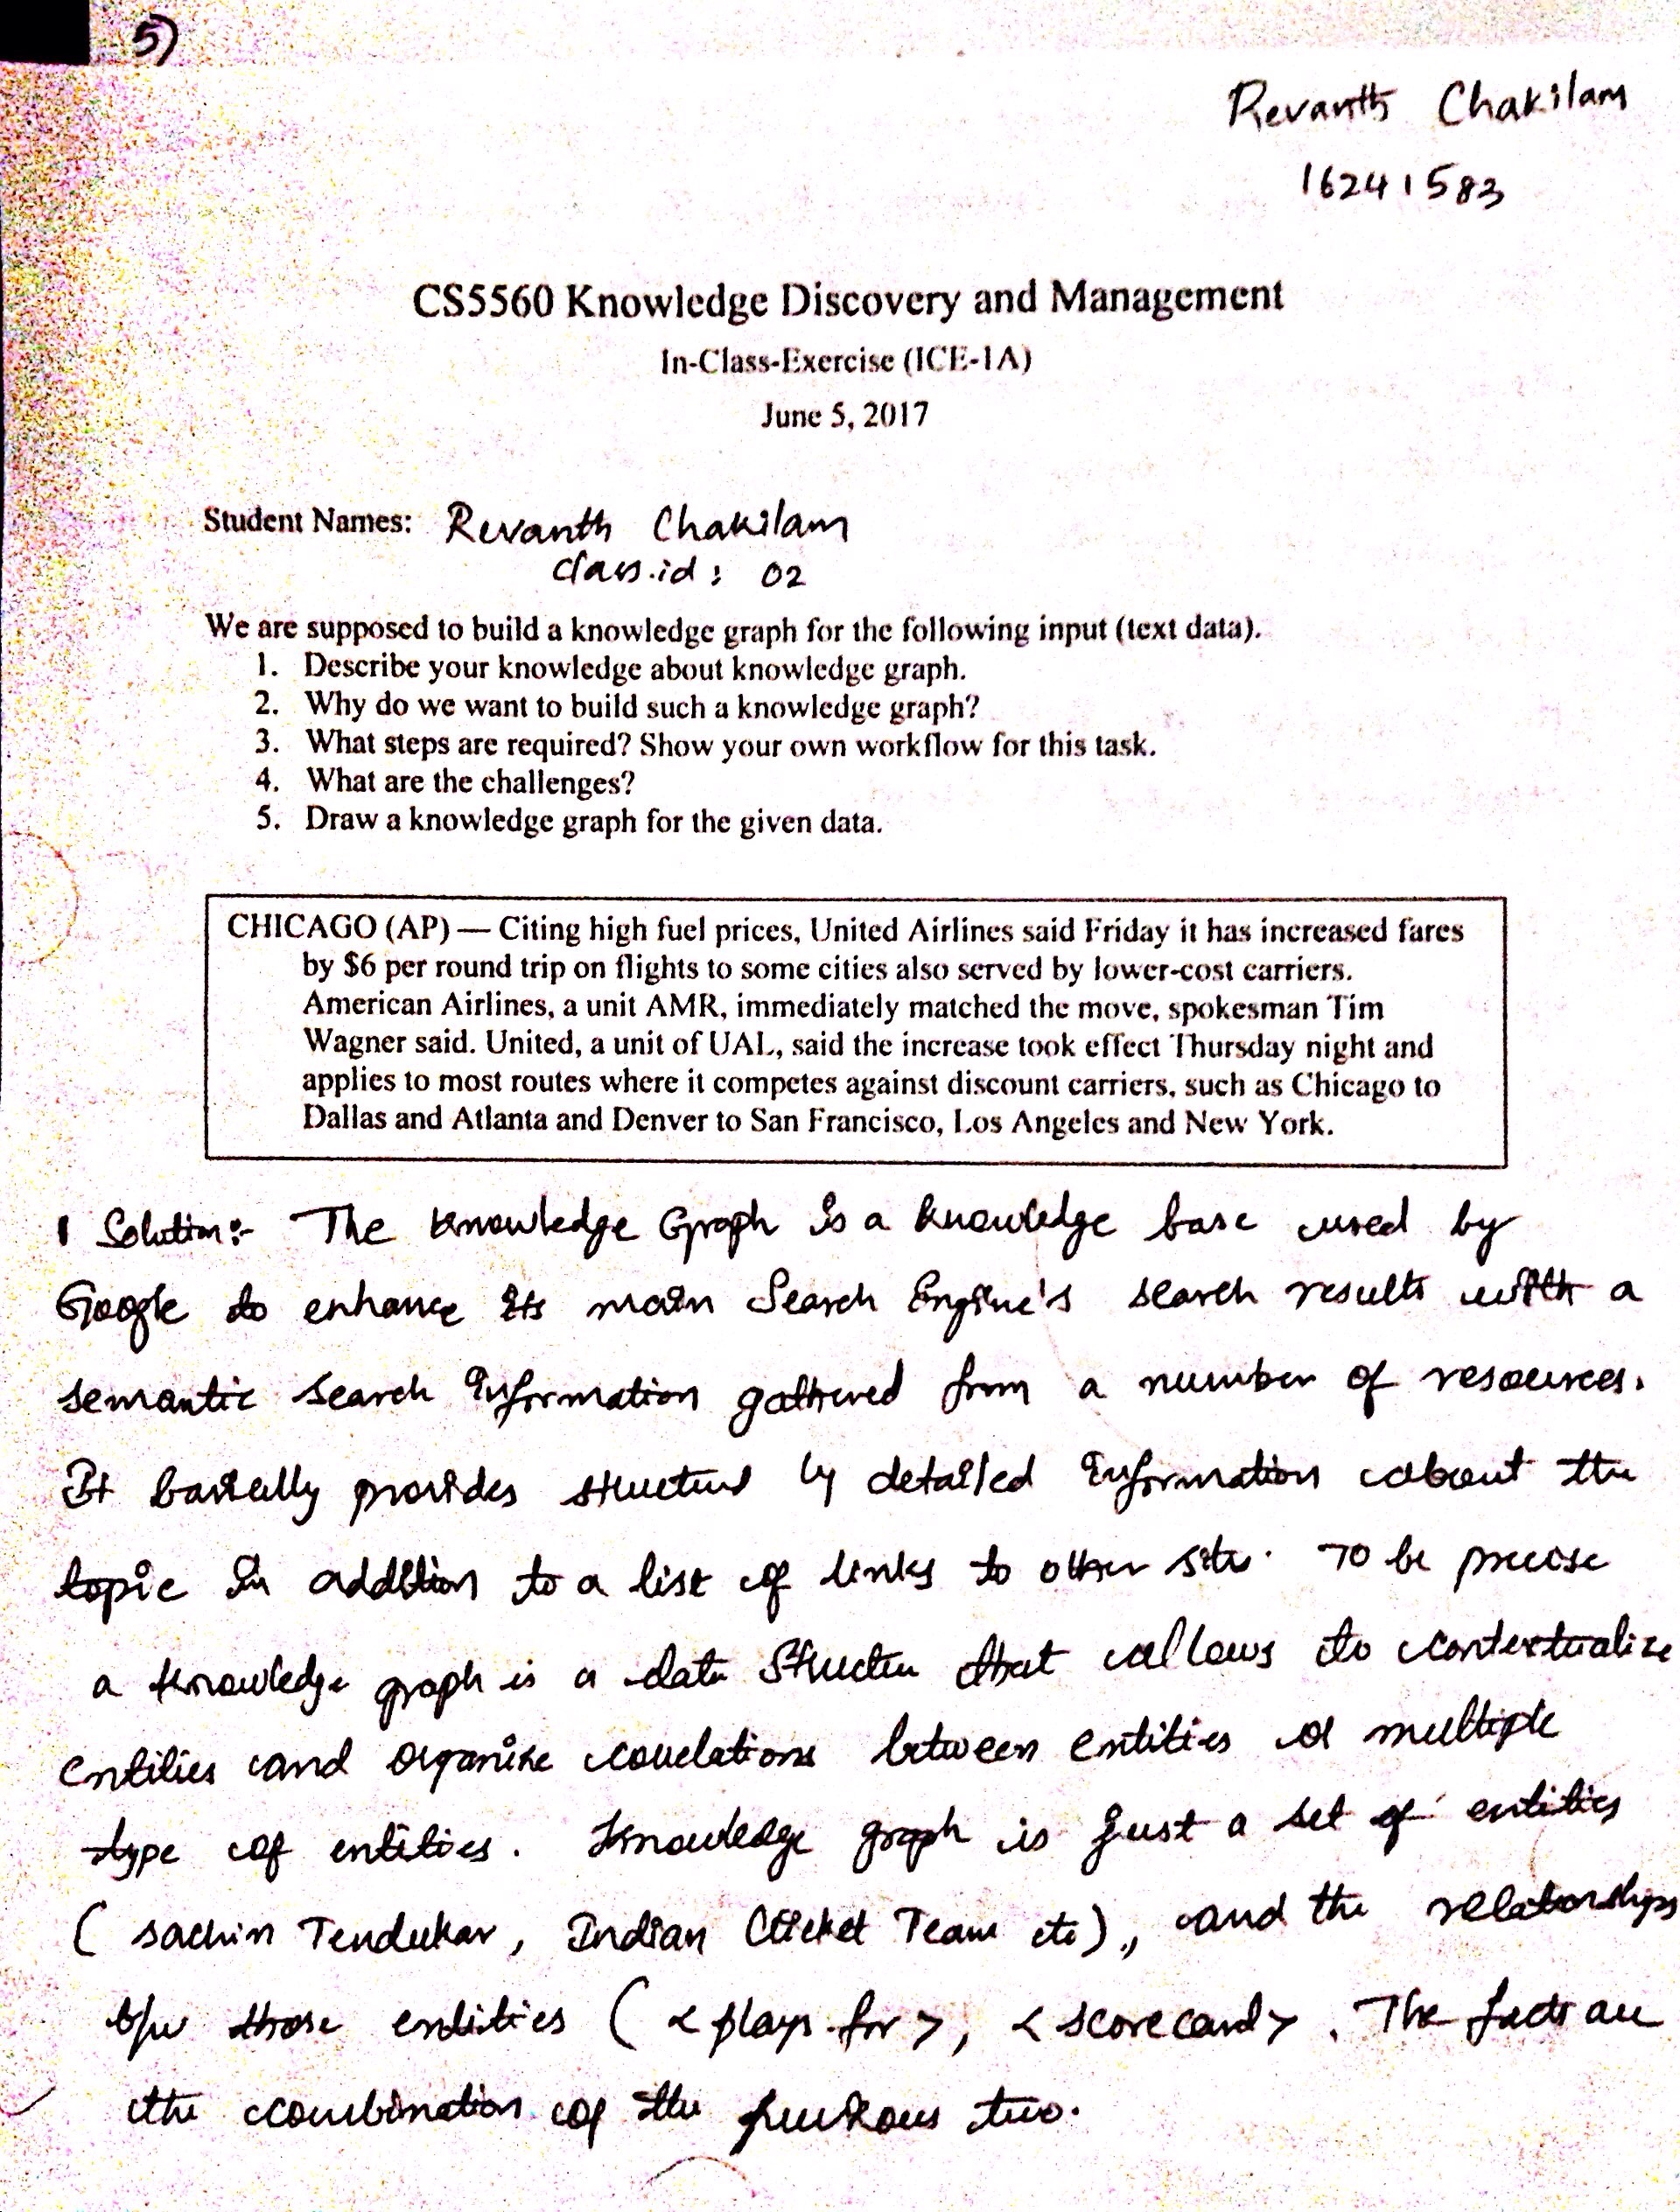 5)
Revanth Chakilam
16241583
CS5560 Knowledge Discovery and Management
In-Class-Exercise (ICE-1A)
June 5, 2017
Student Names: Revanth Chakilam
class.id : 02
We are supposed to build a knowledge graph for the following input (text data).
1. Describe your knowledge about knowledge graph.
2. Why do we want to build such a knowledge graph?
3. What steps are required? Show your own workflow for this task.
4. What are the challenges?
5. Draw a knowledge graph for the given data.
CHICAGO (AP) — Citing high fuel prices, United Airlines said Friday it has increased fares
by $6 per round trip on flights to some cities also served by lower-cost carriers.
American Airlines, a unit AMR, immediately matched the move, spokesman Tim
Wagner said. United, a unit of UAL, said the increase took effect Thursday night and
applies to most routes where it competes against discount carriers, such as Chicago to
Dallas and Atlanta and Denver to San Francisco, Los Angeles and New York.
1 Solution:- The Knowledge Graph is a knowledge base used by
Google to enhance its main Search Engine's search results with a
semantic search information gathered from a number of resources.
It basically provides structured by detailed information about the
topic in addition to a list of links to other site. To be precise
a knowledge graph is a data structure that allows to contextualize
entities and organize correlations between entities or multiple
type of entities. Knowledge graph is just a set of entities
( sachin Tendukar, Indian Cricket Team etc), and the relationships
b/w those entities ( < plays.for >, < scorecard > . The facts are
the combination of the previous two.